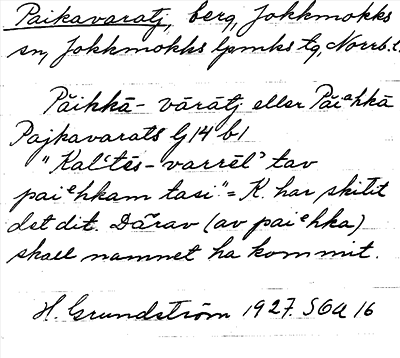 Paikavaratj, berg, Jokkmokks
sn, Jokkmokks lpmks tg, Norrb. l.
Päikkā- vārātj eller Päiᵉhkā
Pajkavarats G 14 b1
"Kalʻtēs-varrēlʼ tav
paiᵉhkam tasi." = K. har skitit
det dit. Därav (av paiᵉhka)
skall namnet ha kommit.
H. Grundström 1927. SOA 16